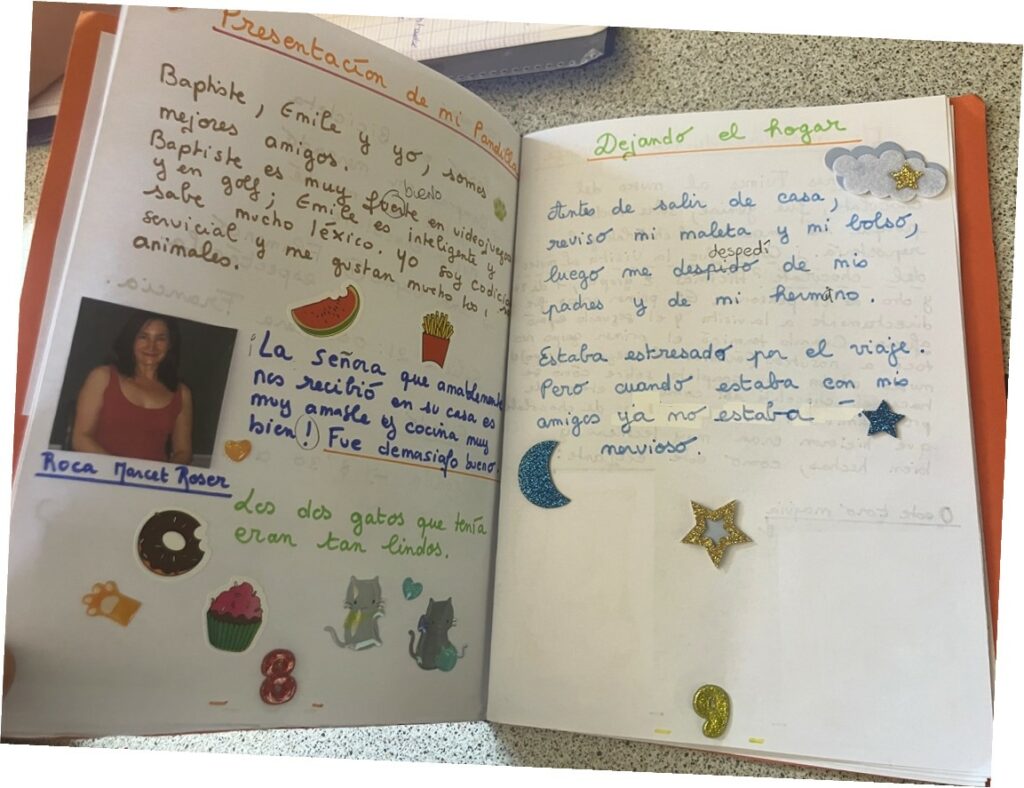 Presentación de mi Pandilla
Baptiste, Emile y yo, somos
mejores amigos.
Baptiste es muy fuerte en videojuegos
bueno
y en golf; Emile es inteligente y
sabe mucho léxico. Yo soy
servicial y me gustan mucho los
animales.
¡La señora que amablemente
nos recibió en su casa es
muy amable y cocina muy
bien! Fue demasiado bueno
Roca Marcet Roser
Los dos gatos que tenía
eran tan lindos.
8
Dejando el hogar
Antes de salir de casa,
reviso mi maleta y mi bolso,
despedí
luego me despido de mis
padres y de mi hermano.
Estaba estresado por el viaje.
Pero cuando estaba con mis
amigos ya no estaba
nervioso.
9